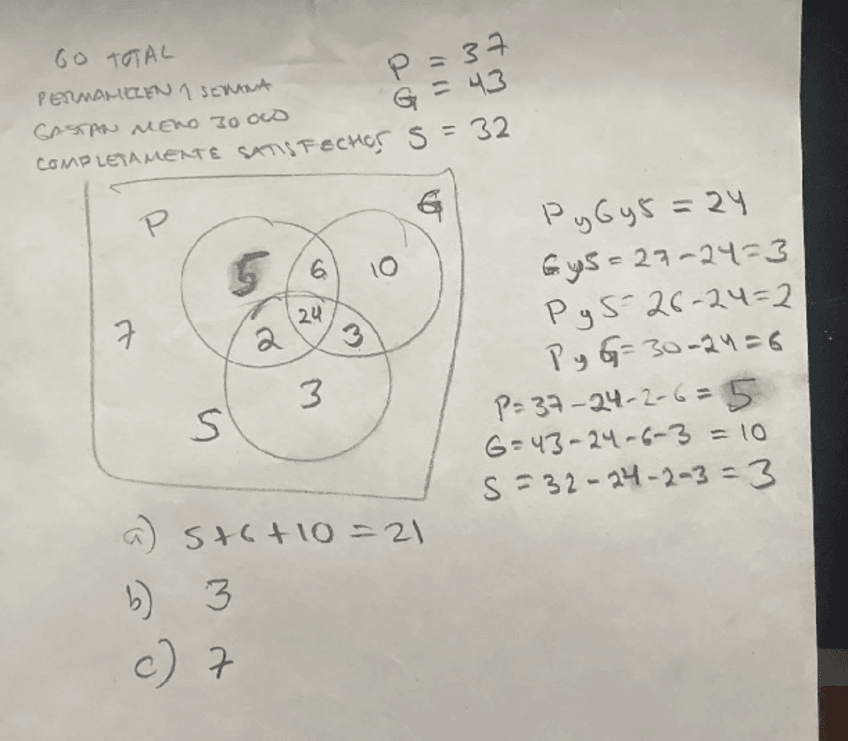 60 TOTAL
PERMANECEN 1 SEMANA
GASTAN MENO 30 000
COMPLETAMENTE SATISFECHOS
P = 37
G = 43
S = 32
P
G
5
6
10
24
7
2
3
3
S
P y G y S = 24
G y S = 27-24=3
P y S = 26-24=2
P y G = 30-24=6
P= 37-24-2-6 = 5
G=43-24-6-3 = 10
S = 32-24-2-3 = 3
a) 5+6+10 = 21
b) 3
c) 7